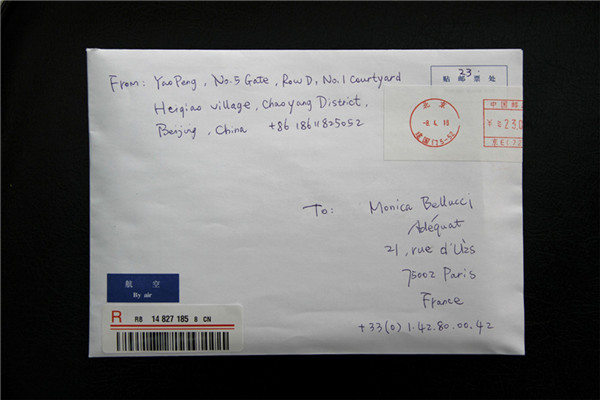 From: Yao Peng, No.5 Gate, Row D, No.1 Courtyard
Heiqiao village, Chaoyang District,
Beijing, China +86 18611825052
23.
贴 邮 票 处
北 京
中国邮
To: Monica Bellucci
Adéquat
21, rue d'Uzs
75002 Paris
France
+33(0) 1.42.80.00.42
航 空
By air
R RB 14 827 185 8 CN